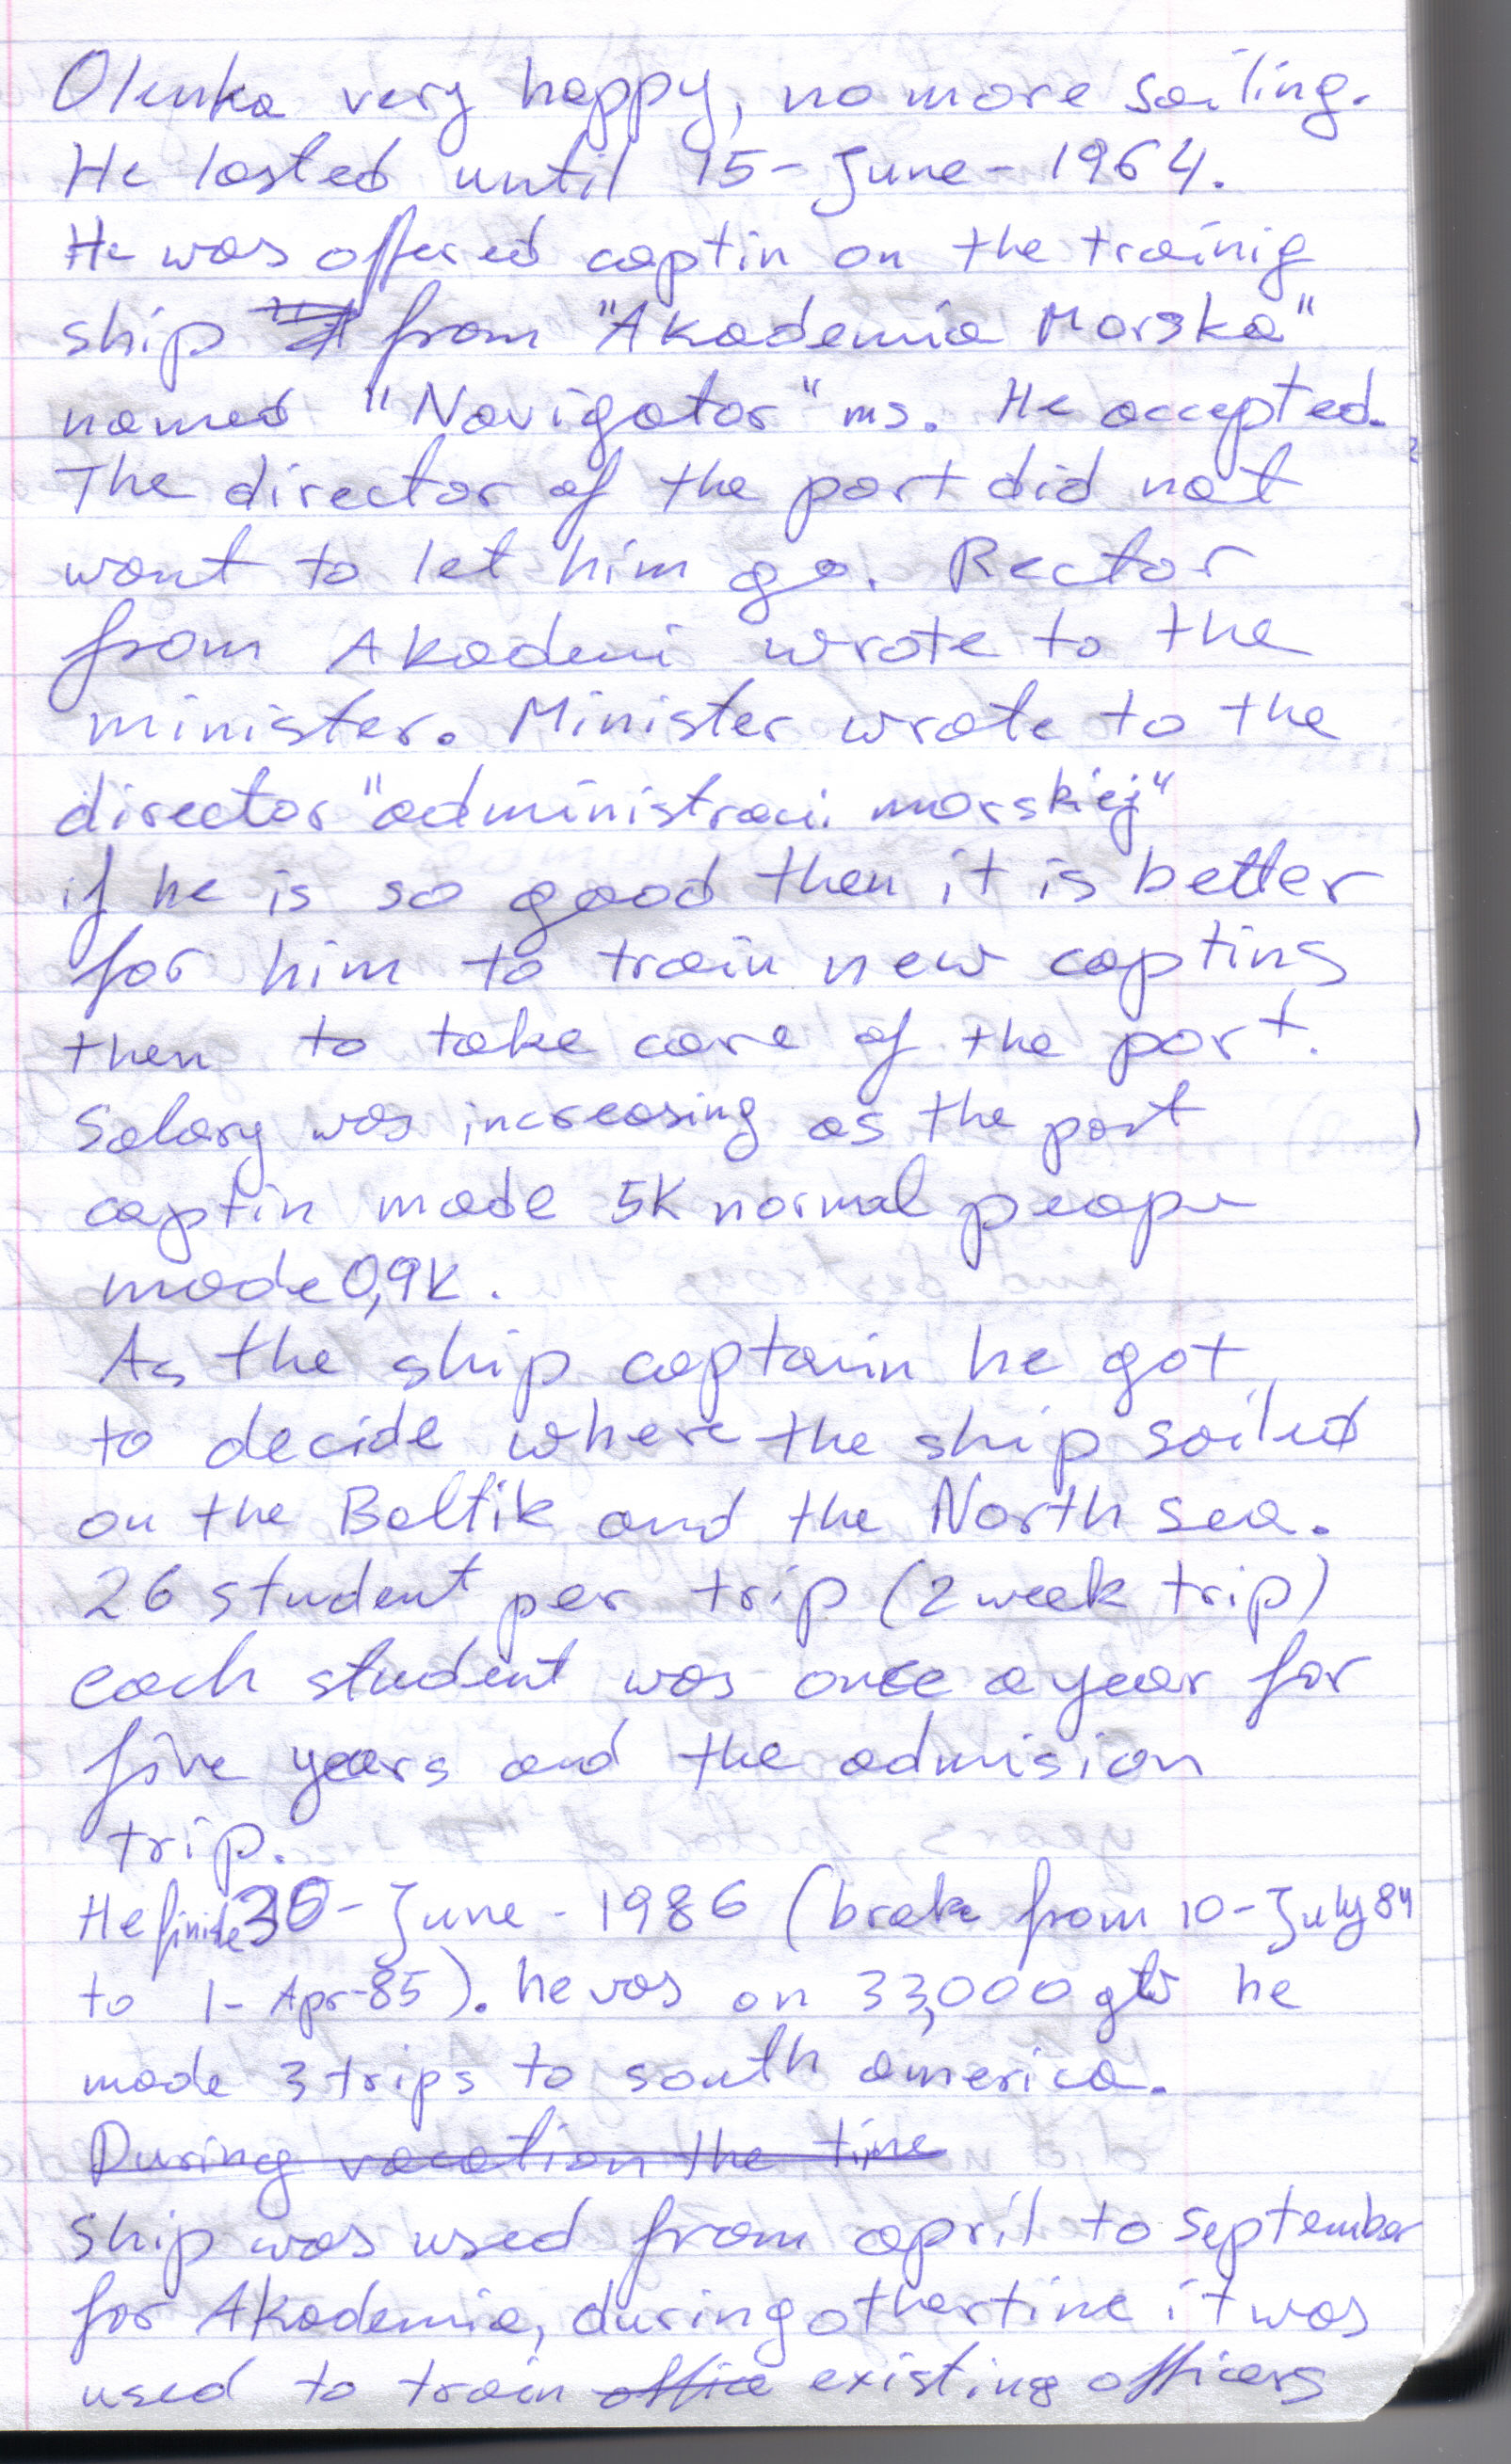 Olenka very happy, no more sailing.
He lasted until 15-June-1964.
He was offered captin on the trainig
ship from "Akademia Morska"
named "Navigator" ms. He accepted.
The director of the port did not
want to let him go. Rector
from Akademi wrote to the
minister. Minister wrote to the
director "administraci morskiej"
if he is so good then it is better
for him to train new captins
then to take care of the port.
Salary was increasing as the port
captin made 5K normal peope
made 0,9K.
As the ship captain he got
to decide where the ship sailed
on the Baltik and the North sea.
26 student per trip (2 week trip)
each student was once a year for
five years and the admision
trip.
He finide 30-June-1986 (brake from 10-July 84
to 1-Apr-85). he was on 33,000 he
made 3 trips to south america.
During vacation the time
ship was used from april to september
for Akademia, during other time it was
used to train office existing officers